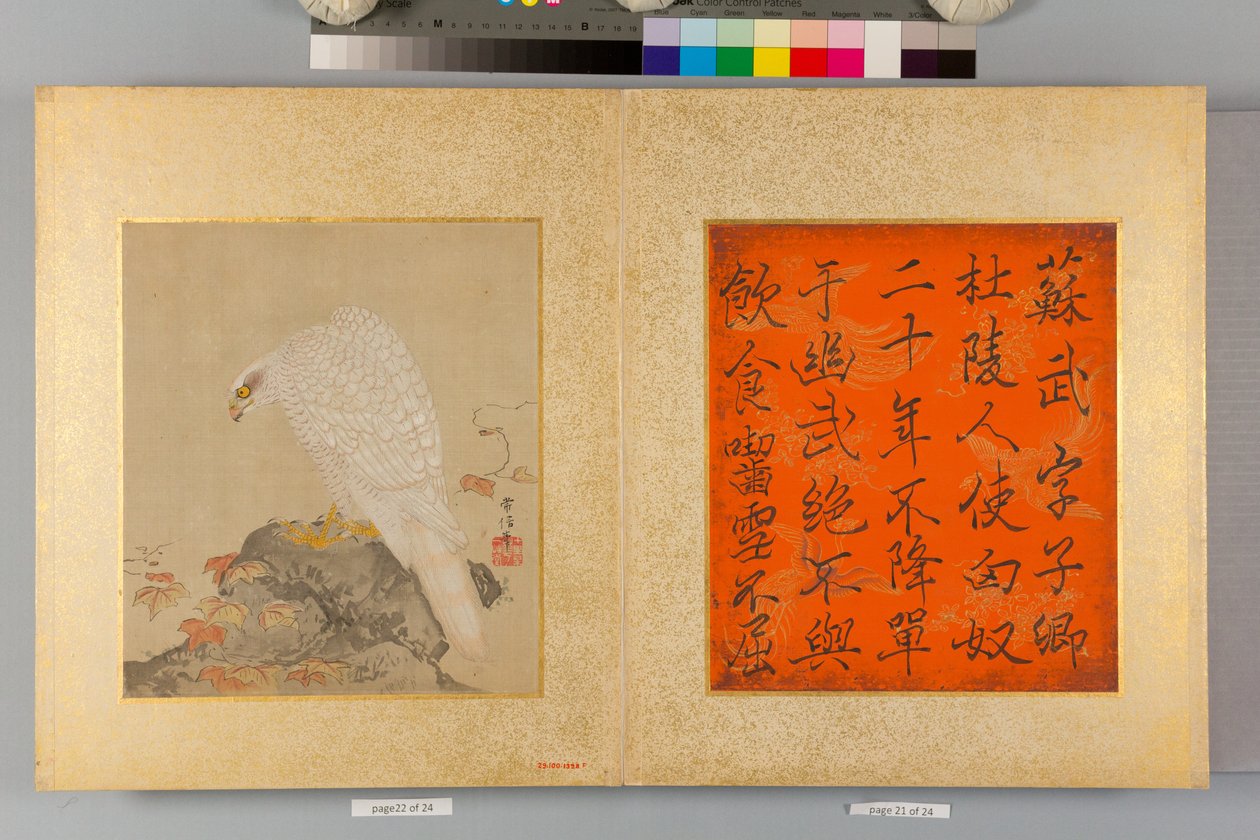 y Scale
A 3 4 5 6 M 8 9 10 11 12 13 14 15 B 17 18 19
Color Control Patches
Blue Cyan Green Yellow Red Magenta White 3/Color
蘇武字子卿
杜陵人使匈奴
二十年不降單
于幽武絶不與
飲食嚙雪不屈
常信筆
29.100.1398 F
page22 of 24
page 21 of 24